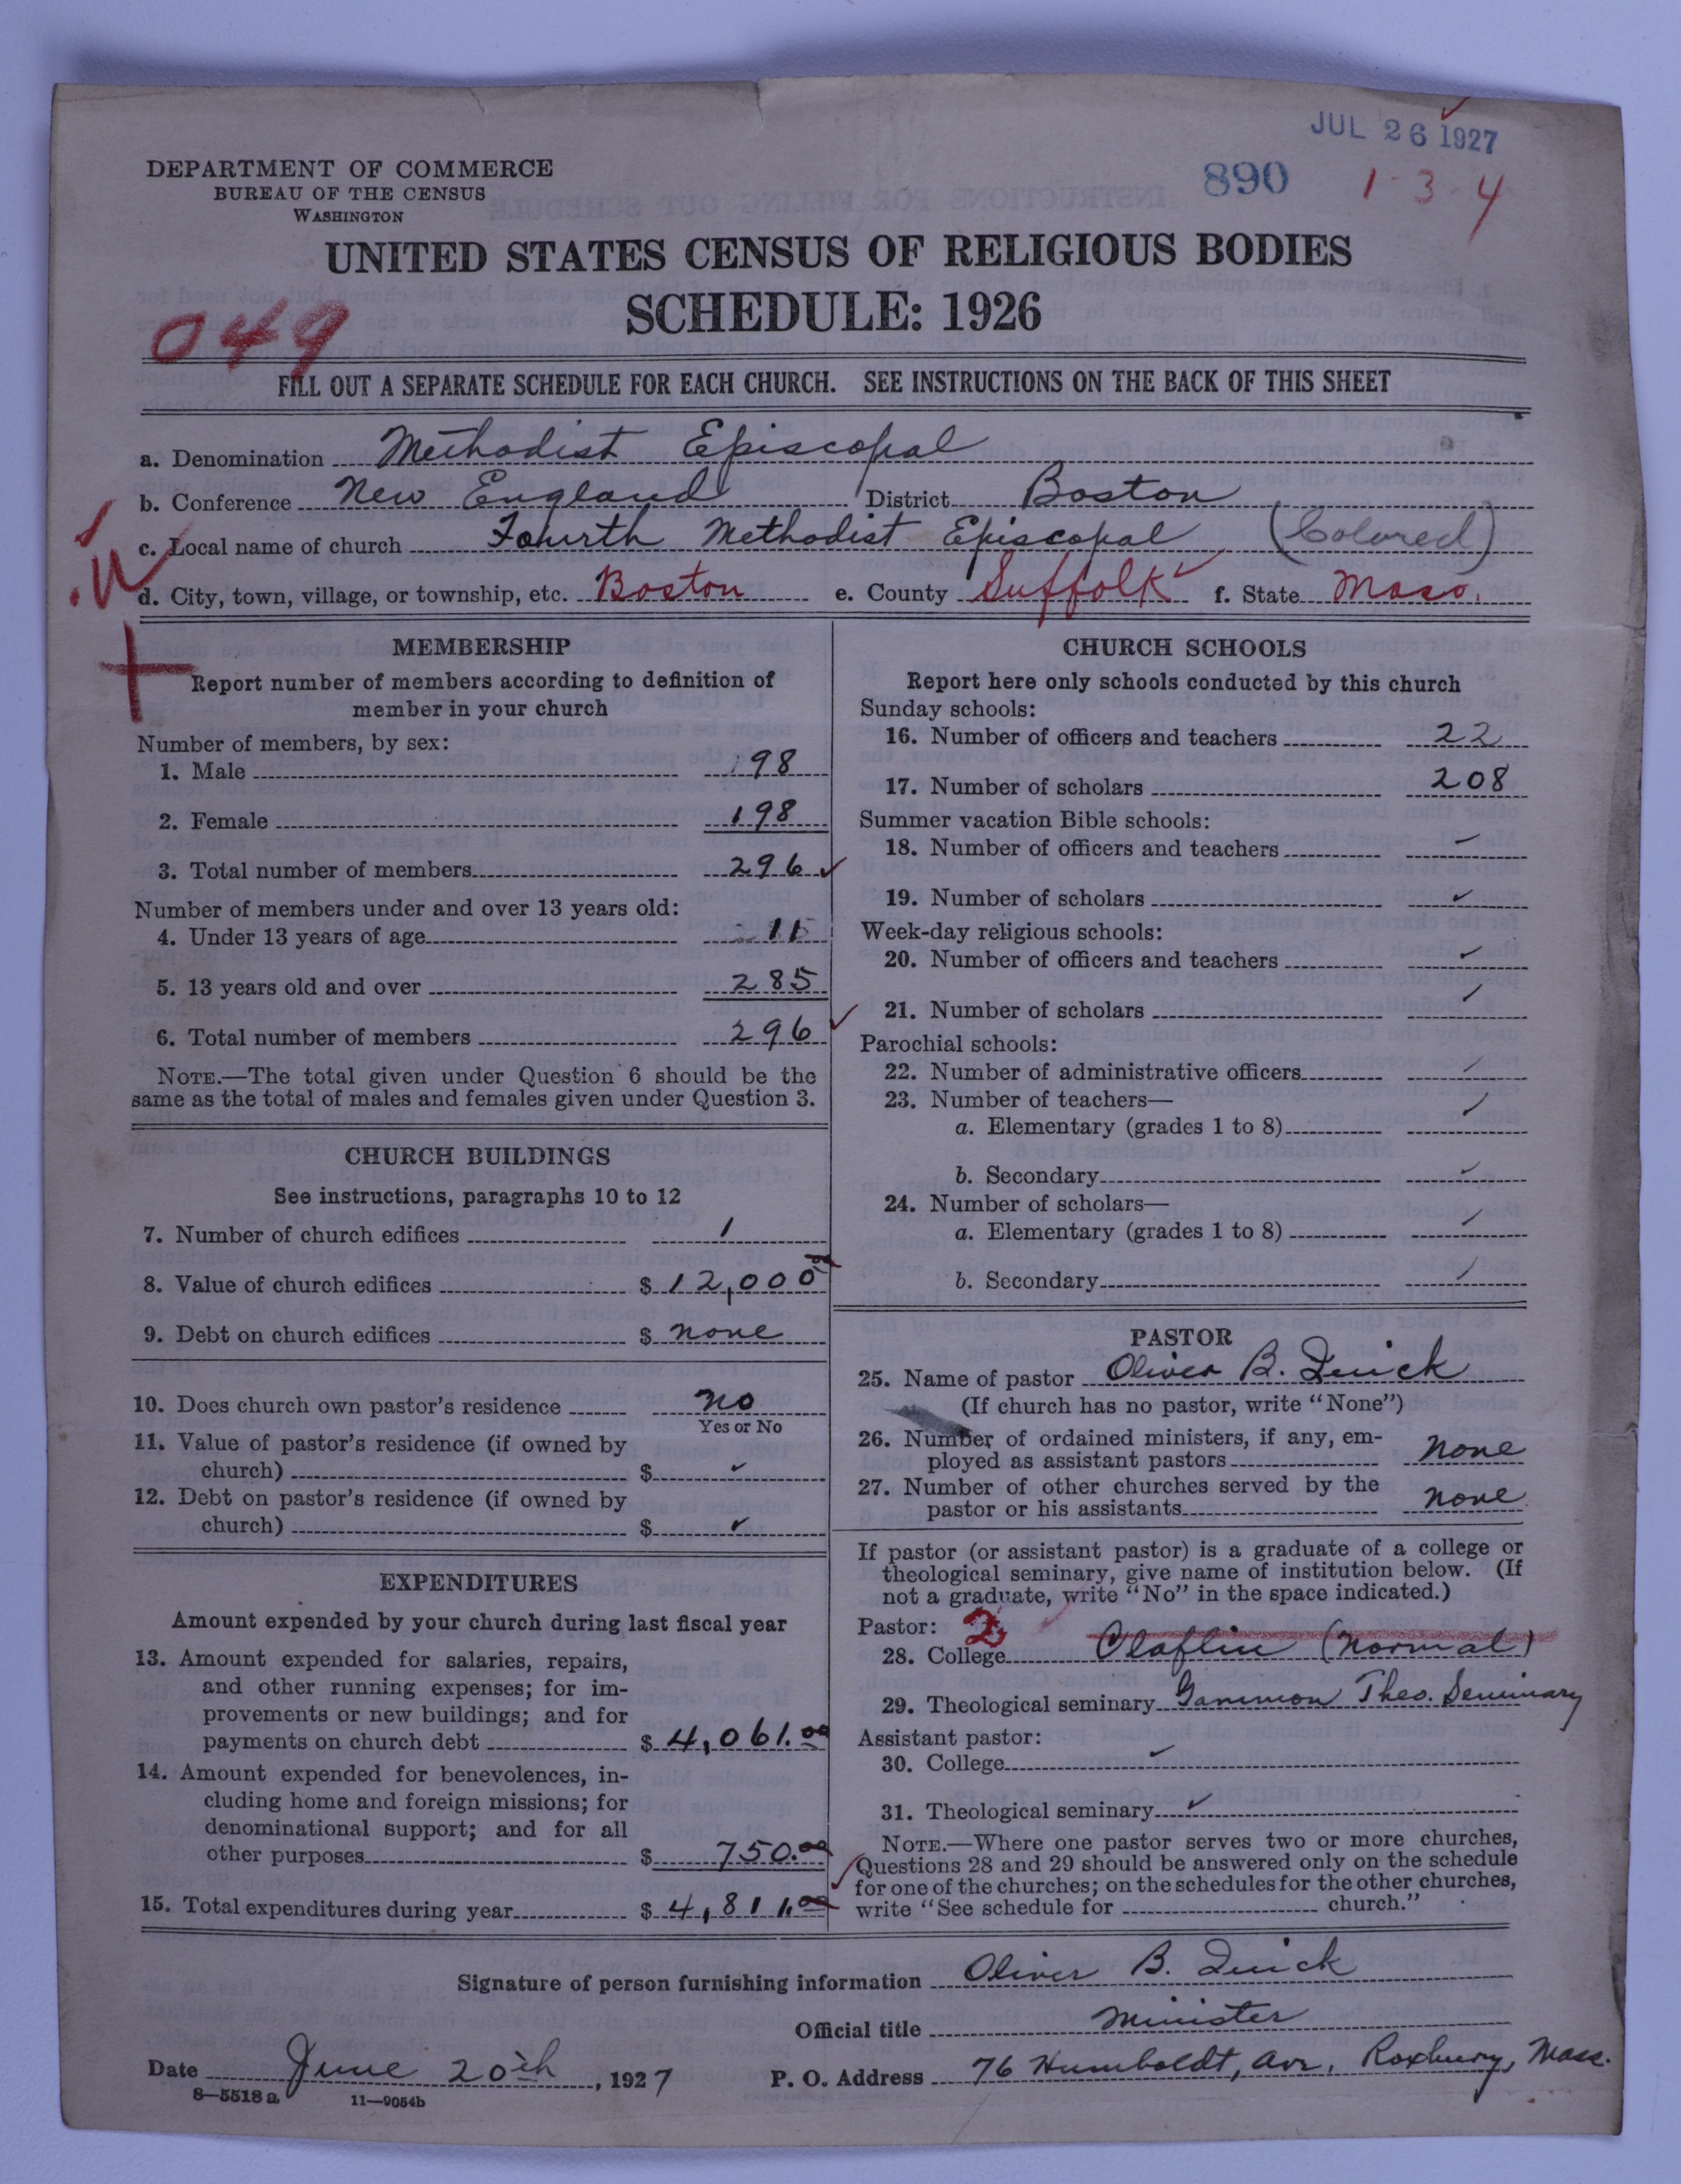 JUL 26 1927
890 1-3-4
DEPARTMENT OF COMMERCE
BUREAU OF THE CENSUS
WASHINGTON
UNITED STATES CENSUS OF RELIGIOUS BODIES
SCHEDULE: 1926
049
FILL OUT A SEPARATE SCHEDULE FOR EACH CHURCH. SEE INSTRUCTIONS ON THE BACK OF THIS SHEET
a. Denomination Methodist Episcopal
b. Conference New England District Boston
c. Local name of church Fourth Methodist Episcopal (Colored)
d. City, town, village, or township, etc. Boston e. County Suffolk f. State Mass.
MEMBERSHIP
Report number of members according to definition of
member in your church
Number of members, by sex:
1. Male 98
2. Female 198
3. Total number of members 296
Number of members under and over 13 years old:
4. Under 13 years of age 11
5. 13 years old and over 285
6. Total number of members 296
NOTE.—The total given under Question 6 should be the
same as the total of males and females given under Question 3.
CHURCH BUILDINGS
See instructions, paragraphs 10 to 12
7. Number of church edifices 1
8. Value of church edifices $ 12,000 00
9. Debt on church edifices $ none
10. Does church own pastor's residence no
Yes or No
11. Value of pastor's residence (if owned by
church) $ ✓
12. Debt on pastor's residence (if owned by
church) $ ✓
EXPENDITURES
Amount expended by your church during last fiscal year
13. Amount expended for salaries, repairs,
and other running expenses; for im-
provements or new buildings; and for
payments on church debt $ 4,061.00
14. Amount expended for benevolences, in-
cluding home and foreign missions; for
denominational support; and for all
other purposes $ 750.00
15. Total expenditures during year $ 4,811.00
CHURCH SCHOOLS
Report here only schools conducted by this church
Sunday schools:
16. Number of officers and teachers 22
17. Number of scholars 208
Summer vacation Bible schools:
18. Number of officers and teachers —
19. Number of scholars ✓
Week-day religious schools:
20. Number of officers and teachers ✓
21. Number of scholars ✓
Parochial schools:
22. Number of administrative officers ✓
23. Number of teachers— ✓
a. Elementary (grades 1 to 8)
b. Secondary ✓
24. Number of scholars—
a. Elementary (grades 1 to 8) ✓
b. Secondary ✓
PASTOR
25. Name of pastor Oliver B. Quick
(If church has no pastor, write "None")
26. Number of ordained ministers, if any, em-
ployed as assistant pastors none
27. Number of other churches served by the
pastor or his assistants none
If pastor (or assistant pastor) is a graduate of a college or
theological seminary, give name of institution below. (If
not a graduate, write "No" in the space indicated.)
Pastor: 2
28. College Claflin (normal)
29. Theological seminary Gammon Theo. Seminary
Assistant pastor:
30. College ✓
31. Theological seminary ✓
NOTE.—Where one pastor serves two or more churches,
Questions 28 and 29 should be answered only on the schedule
for one of the churches; on the schedules for the other churches,
write "See schedule for church."
Signature of person furnishing information Oliver B. Quick
Official title Minister
Date June 20th, 1927 P. O. Address 76 Humboldt, Ave, Roxbury, Mass.
8—5518 a 11—9054b